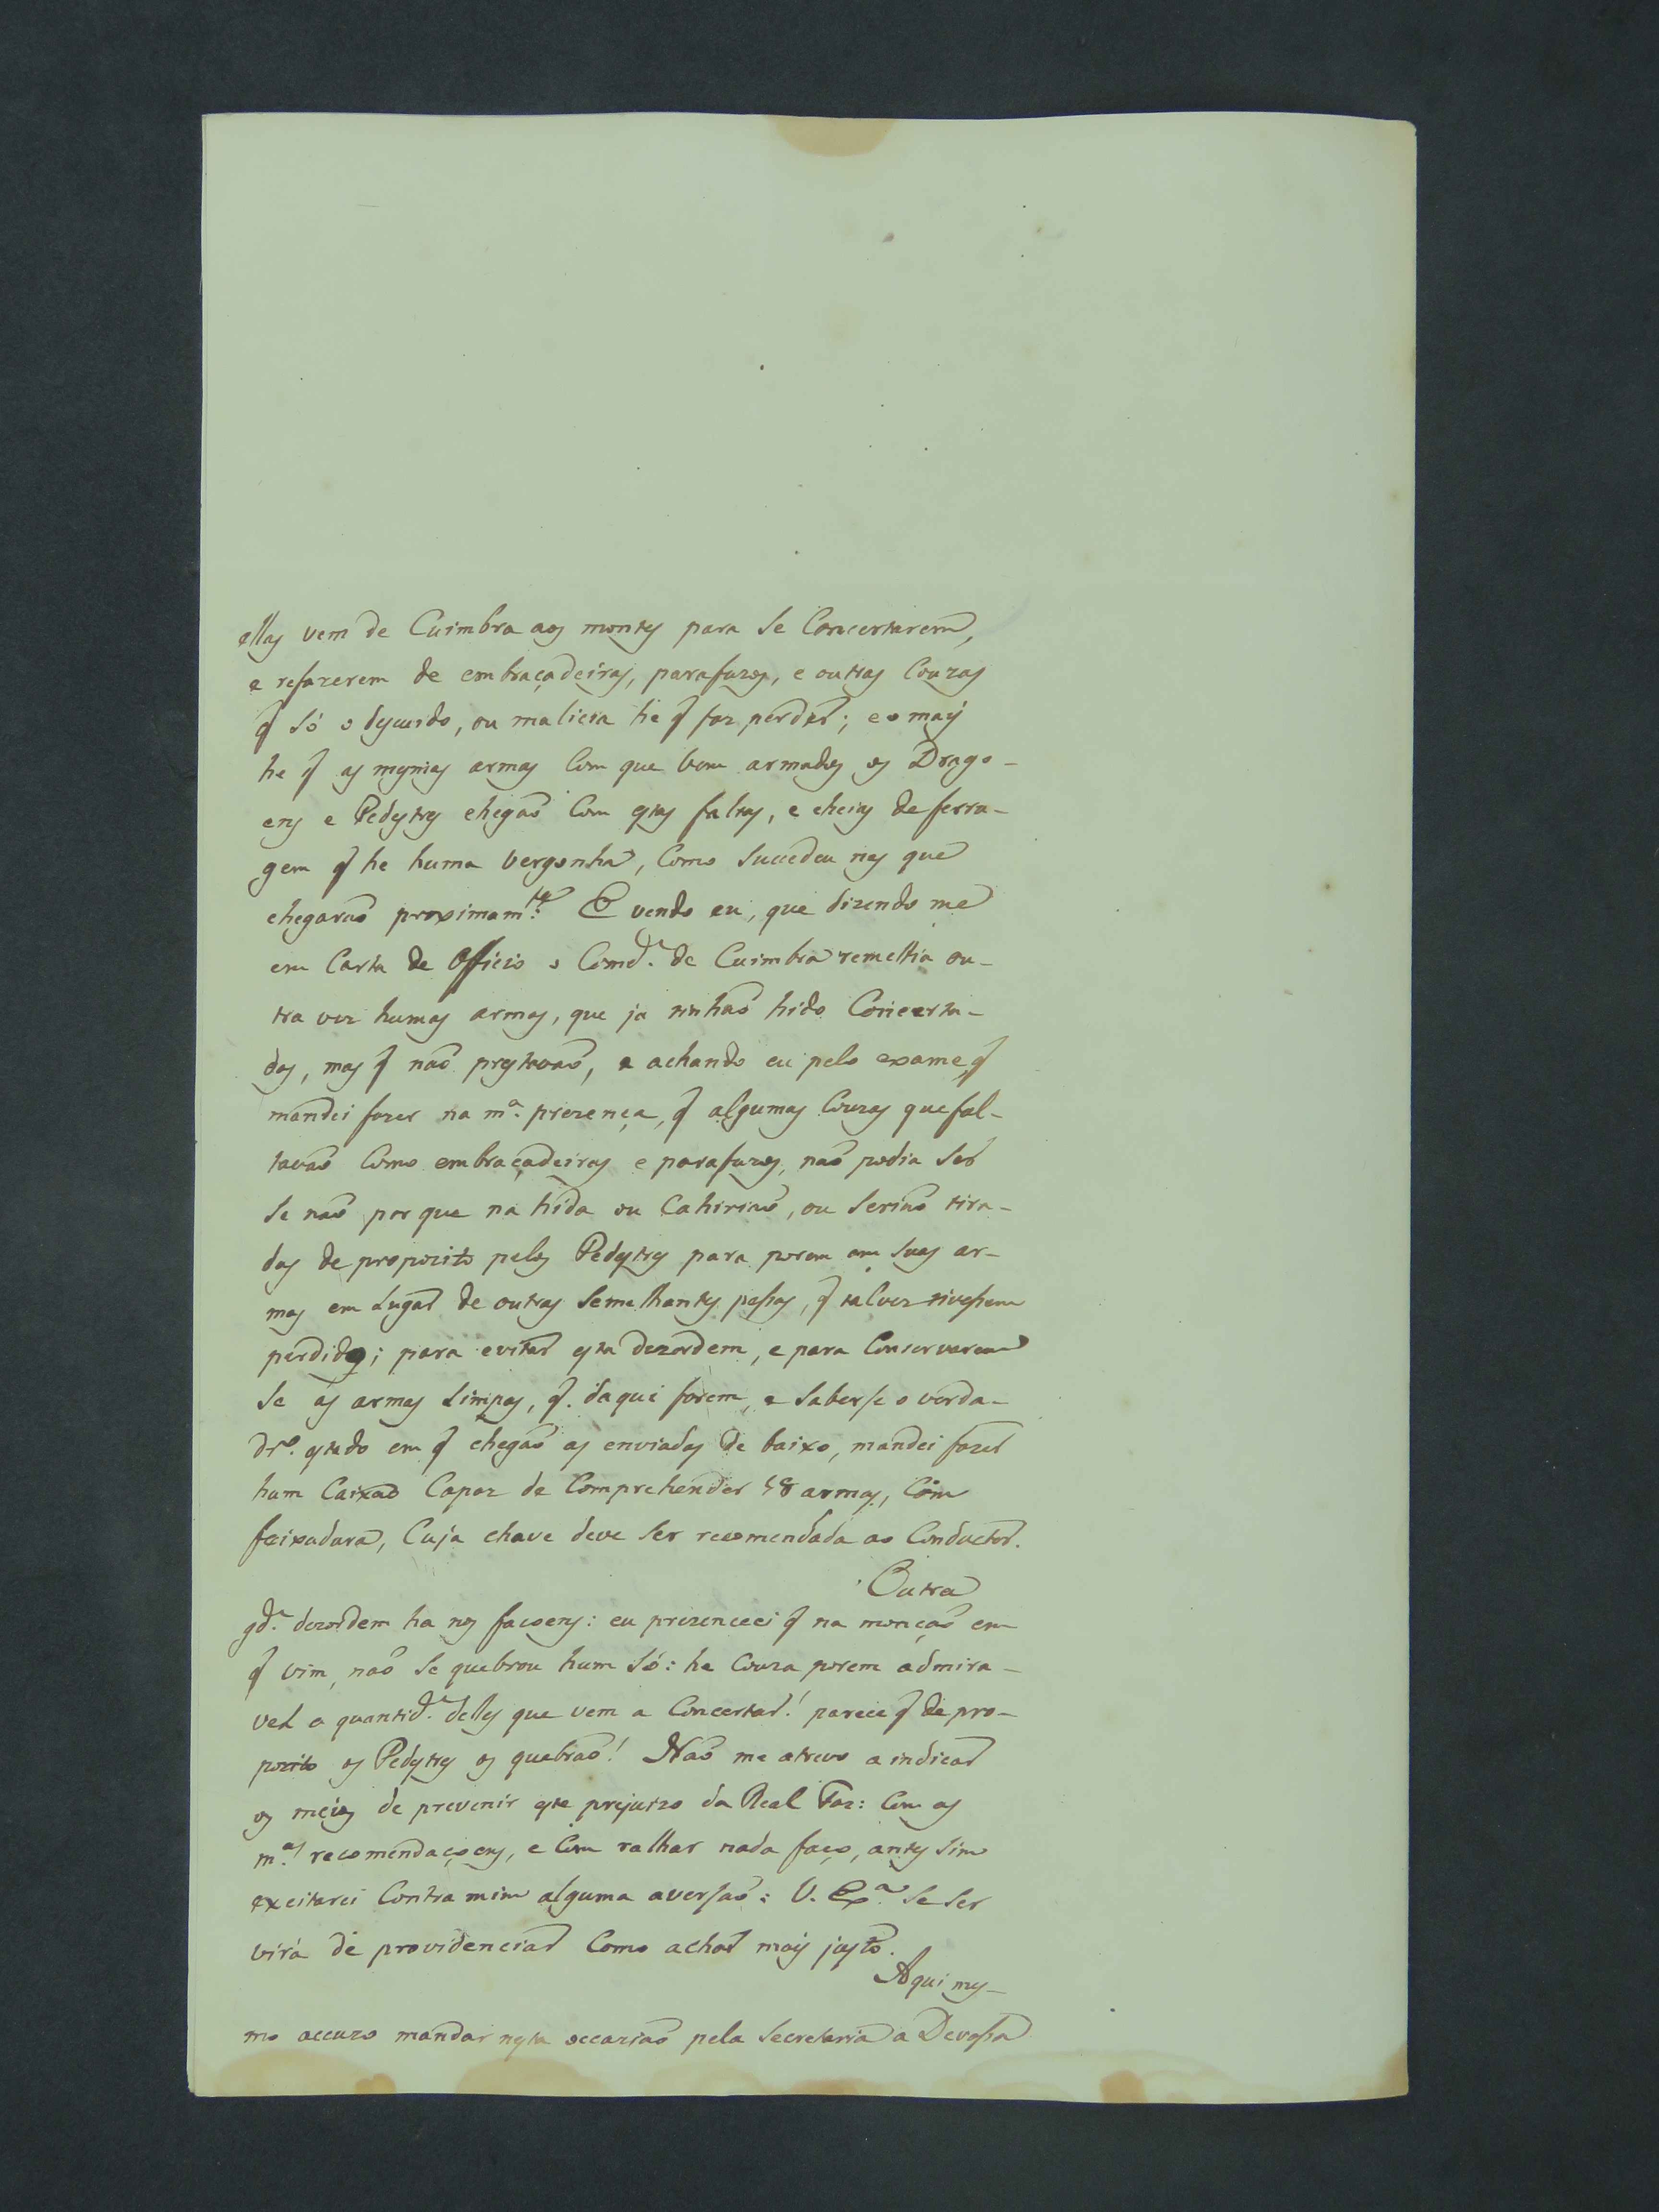 ellas vem de Cuimbra aos montes para se Concertarem,
e refazerem de embraçadeiras, parafuzos, e outras Couzas
q só o descuido, ou malicia he q faz perder; e o mais
he q as mesmas armas Com que vem armados os Drago-
ens e Pedestres chegaõ Com estas faltas, e cheias de ferru-
gem q he huma vergonha, Como succedeu nas que
chegaraõ proximam.te E vendo eu, que dizendo me
em Carta de Officio o Comd.e de Cuimbra remettia ou-
tra vez humas armas, que ja tinhaõ hido Concerta-
das, mas q naõ prestavaõ, e achando eu pelo exame, q
mandei fazer na m.a prezença, q algumas Couzas que fal-
tavaõ Como embraçadeiras e parafuzos, naõ podia ser
se naõ por que na hida ou Cahiriaõ, ou seriaõ tira-
das de propozito pelos Pedestres para porem em suas ar-
mas em Lugar de outras semelhantes pessas, q talvez tivessem
perdido; para evitar esta dezordem, e para Conservarem
se as armas Limpas, q. daqui forem, e saberse o verda-
dr.o estado em q chegaõ as enviadas de baixo, mandei fazer
hum Caixaõ Capaz de Comprehender 18 armas, Com
feixadura, Cuja chave deve ser recomendada ao Conductor.
Outra
gd.e dezordem ha nos facoens: eu prezenceei q na monçaõ em
q vim, naõ se quebrou hum só: he Couza porem admira-
vel a quantid.e delles que vem a Concertar! parece q de pro-
pozito os Pedestres os quebraõ! Naõ me atrevo a indicar
os meios de prevenir este prejuizo da Real Faz: Com as
m.as recomendaçoens, e Com ralhar nada faço, antes sim
excitarei Contra mim alguma aversaõ: V. Ex.a se ser
virá de providenciar Como achar mais justo.
Aqui mes-
mo accuzo mandar nesta occaziaõ pela Secretaria a Devassa